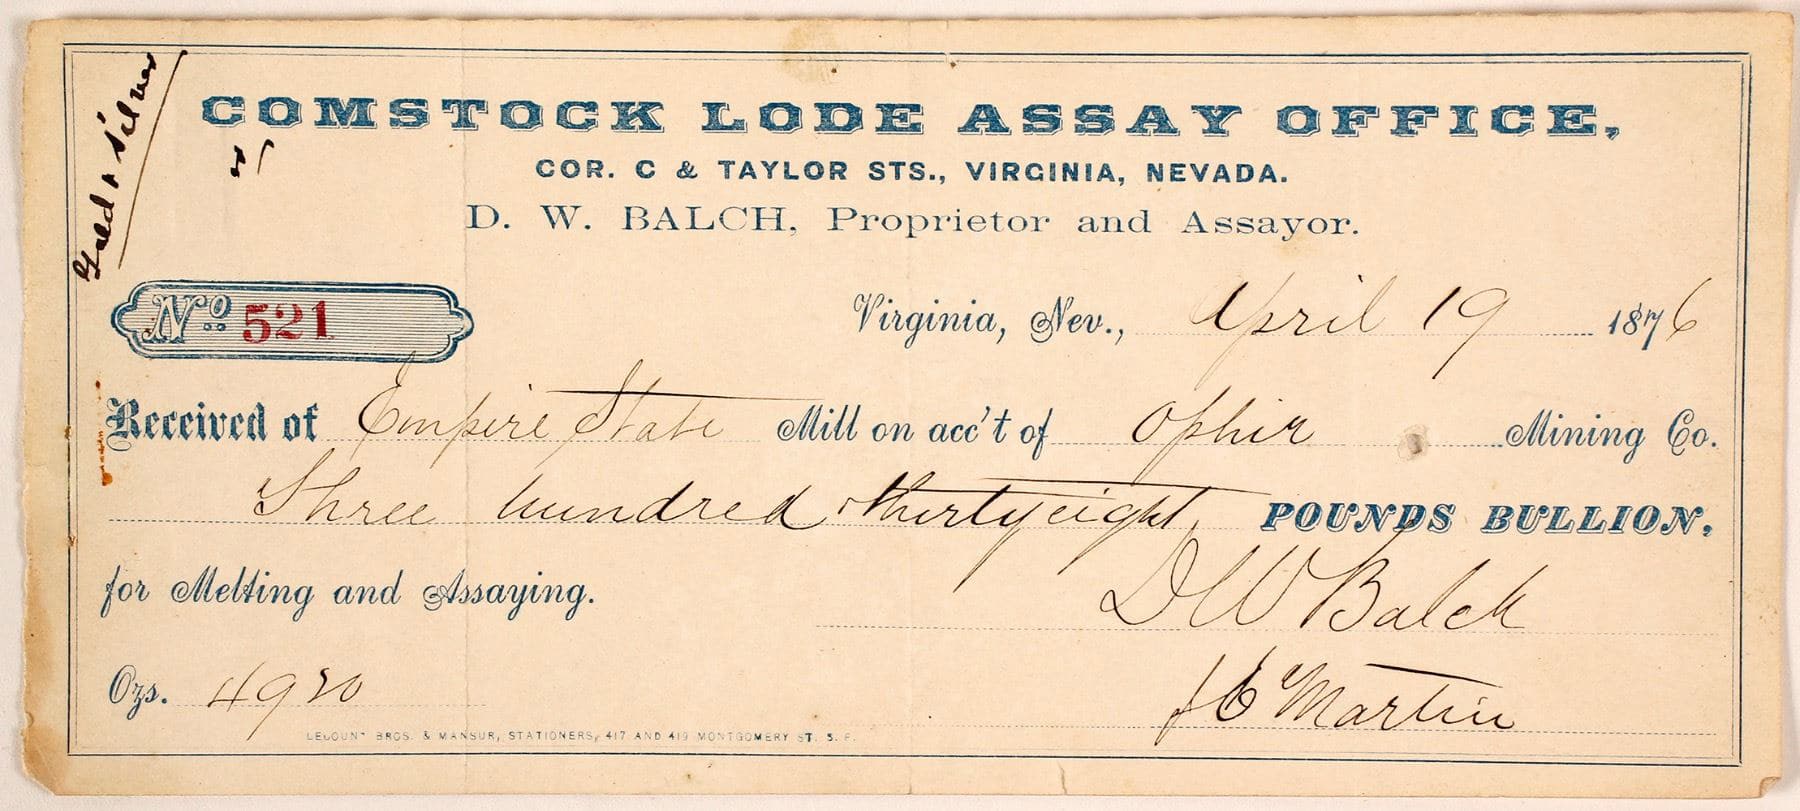 Gold & Silver
COMSTOCK LODE ASSAY OFFICE,
COR. C & TAYLOR STS., VIRGINIA, NEVADA.
D. W. BALCH, Proprietor and Assayor.
No. 521
Virginia, Nev., April 19 1876
Received of Empire State Mill on acc't of Ophir Mining Co.
Three hundred thirty eight POUNDS BULLION,
for Melting and Assaying.
D W Balch
Ozs. 4920
Martin
LECOUNT BROS. & MANSUR, STATIONERS, 417 AND 419 MONTGOMERY ST. S. F.